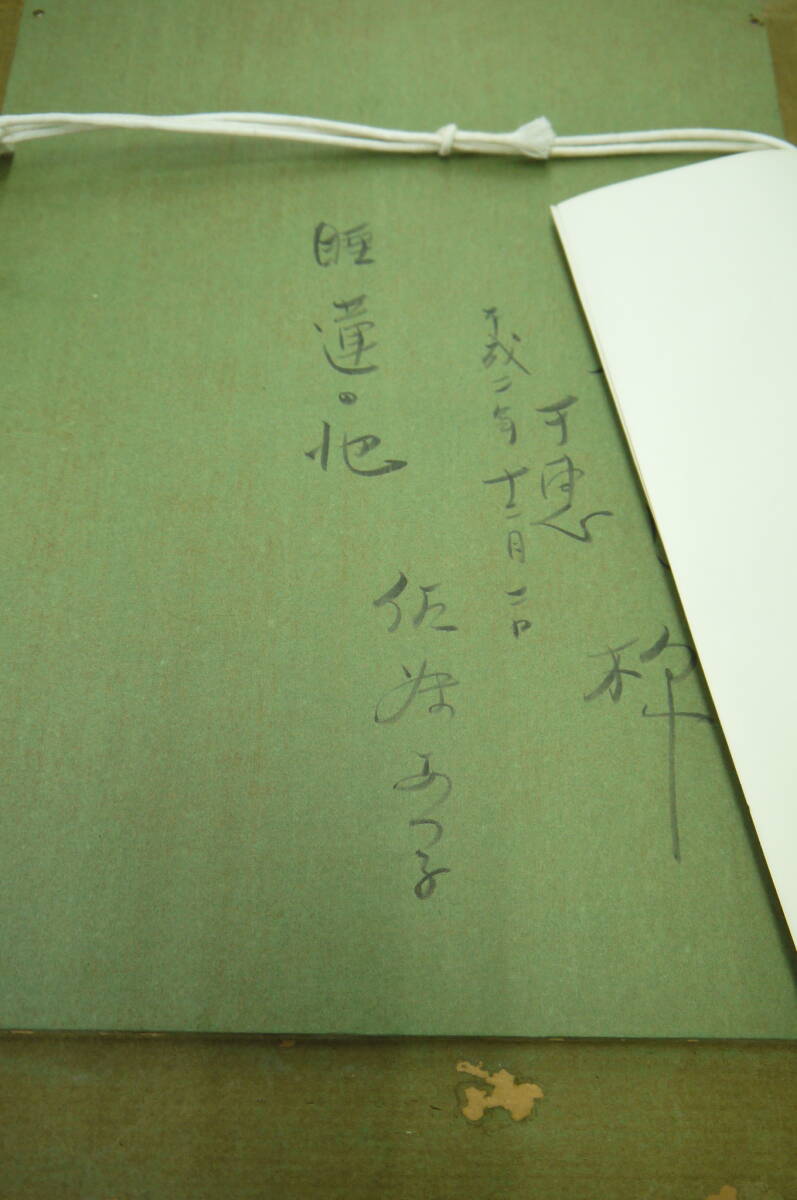 様
千恵
平成二年十二月一日
佐
あつ子
睡蓮の池